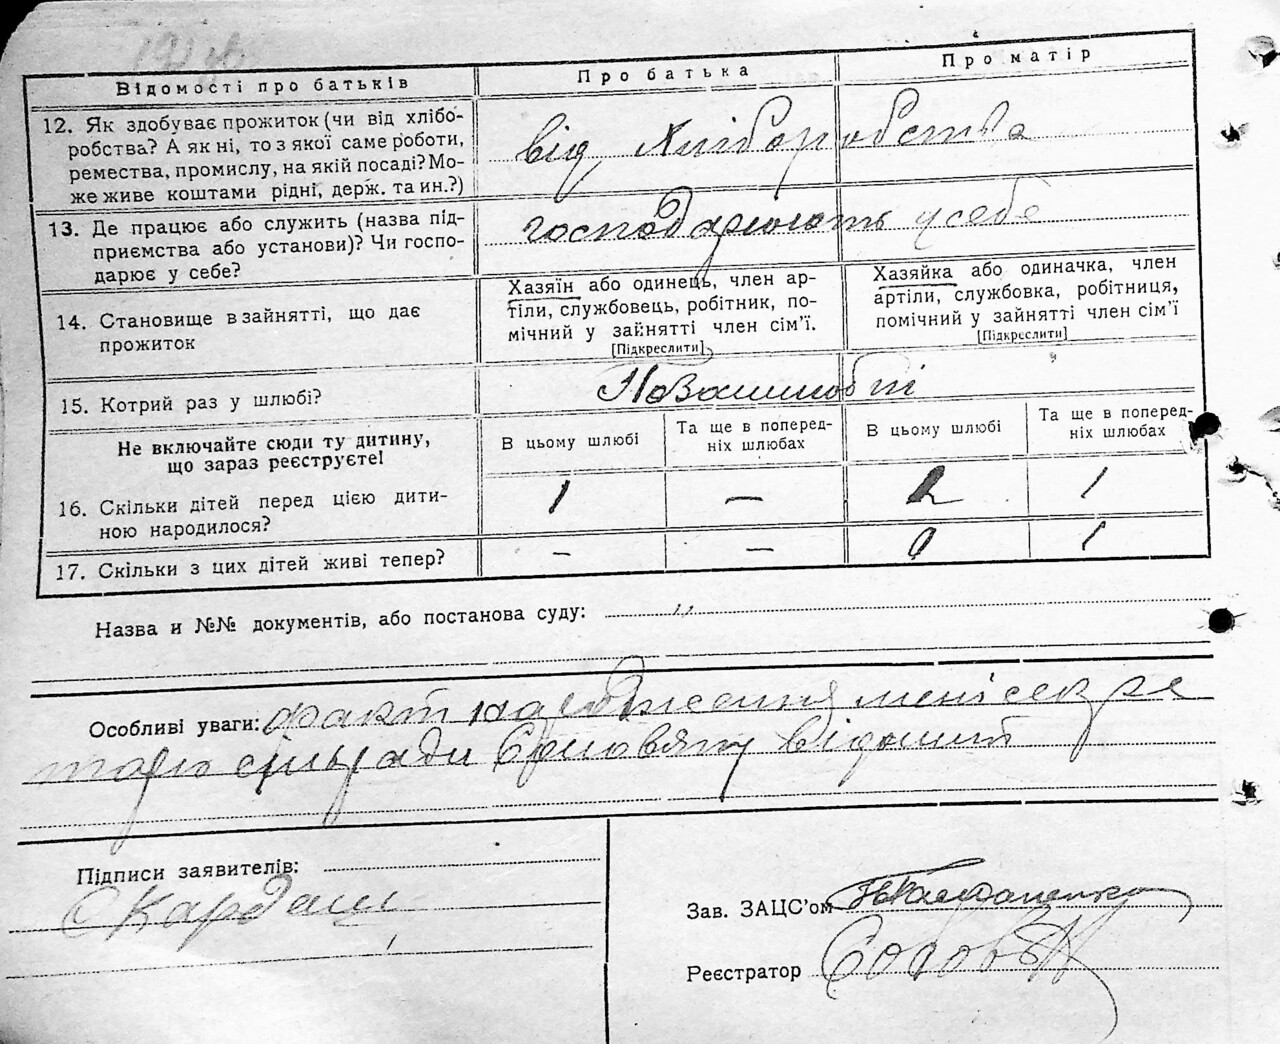 Відомості про батьків
Про батька
Про матір
12. Як здобуває прожиток (чи від хлібо-
робства? А як ні, то з якої саме роботи,
ремества, промислу, на якій посаді? Мо-
же живе коштами рідні, держ. та ин.?)
від хліборобства
13. Де працює або служить (назва під-
приємства або установи)? Чи госпо-
дарює у себе?
господарюють у себе
14. Становище в зайнятті, що дає
прожиток
Хазяїн або одинець, член ар-
тіли, службовець, робітник, по-
мічний у зайнятті член сім'ї.
[Підкреслити]
Хазяйка або одиначка, член
артіли, службовка, робітниця,
помічний у зайнятті член сім'ї
[Підкреслити]
15. Котрий раз у шлюбі?
Не включайте сюди ту дитину,
що зараз реєструєте!
В цьому шлюбі
Та ще в поперед-
ніх шлюбах
В цьому шлюбі
Та ще в поперед-
ніх шлюбах
16. Скільки дітей перед цією дити-
ною народилося?
1 — 1
17. Скільки з цих дітей живі тепер?
— — 0 1
Назва и №№ документів, або постанова суду: "
Особливі уваги: факт народження мені секре
тарю сільради відомий
Підписи заявителів:
Кардаш
Зав. ЗАЦС'ом
Реєстратор